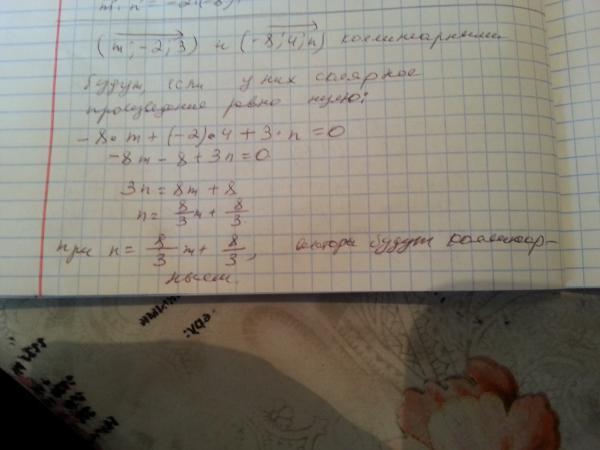 (m; -2; 3) и (-8; 4; n) коллинеарными
будут, если у них скалярное
произведение равно нулю:
-8·m + (-2)·4 + 3·n = 0
-8m - 8 + 3n = 0
3n = 8m + 8
n = 8/3 m + 8/3
при n = 8/3 m + 8/3, векторы будут коллинеар-
ными.